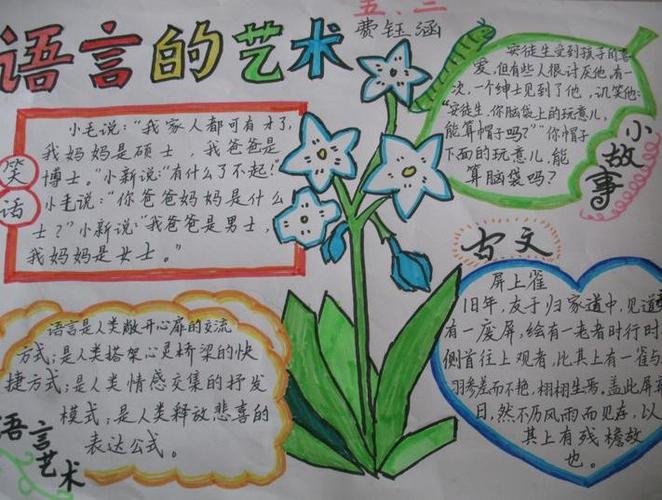 语言的艺术
五、二
费钰涵
笑话
小毛说:“我家人都可有才了,
我妈妈是硕士,我爸爸是
博士。”小新说“有什么了不起!”
小毛说:“你爸爸妈妈是什么
士?”小新说“我爸爸是男士,
我妈妈是女士。”
小故事
安徒生受到孩子的喜
爱,但有些人很讨灰他,有一
次,一个绅士见到了他,讥笑他:
“安徒生,你脑袋上的玩意儿,
能算帽子吗?”“你帽子
下面的玩意儿,能
算脑袋吗?
古文
屏上雀
旧年,友于归家道中,见道
有一废屏,绘有一老者时行时
侧首往上观者,比其上有一雀与
羽参差而不艳,栩栩生焉,盖此屏
日,然不历风雨而见存,以
其上有残檐故
也。
语言艺术
语言是人类敞开心扉的交流
方式;是人类搭架心灵桥梁的快
捷方式;是人类情感交集的抒发
模式;是人类释放悲喜的
表达公式。